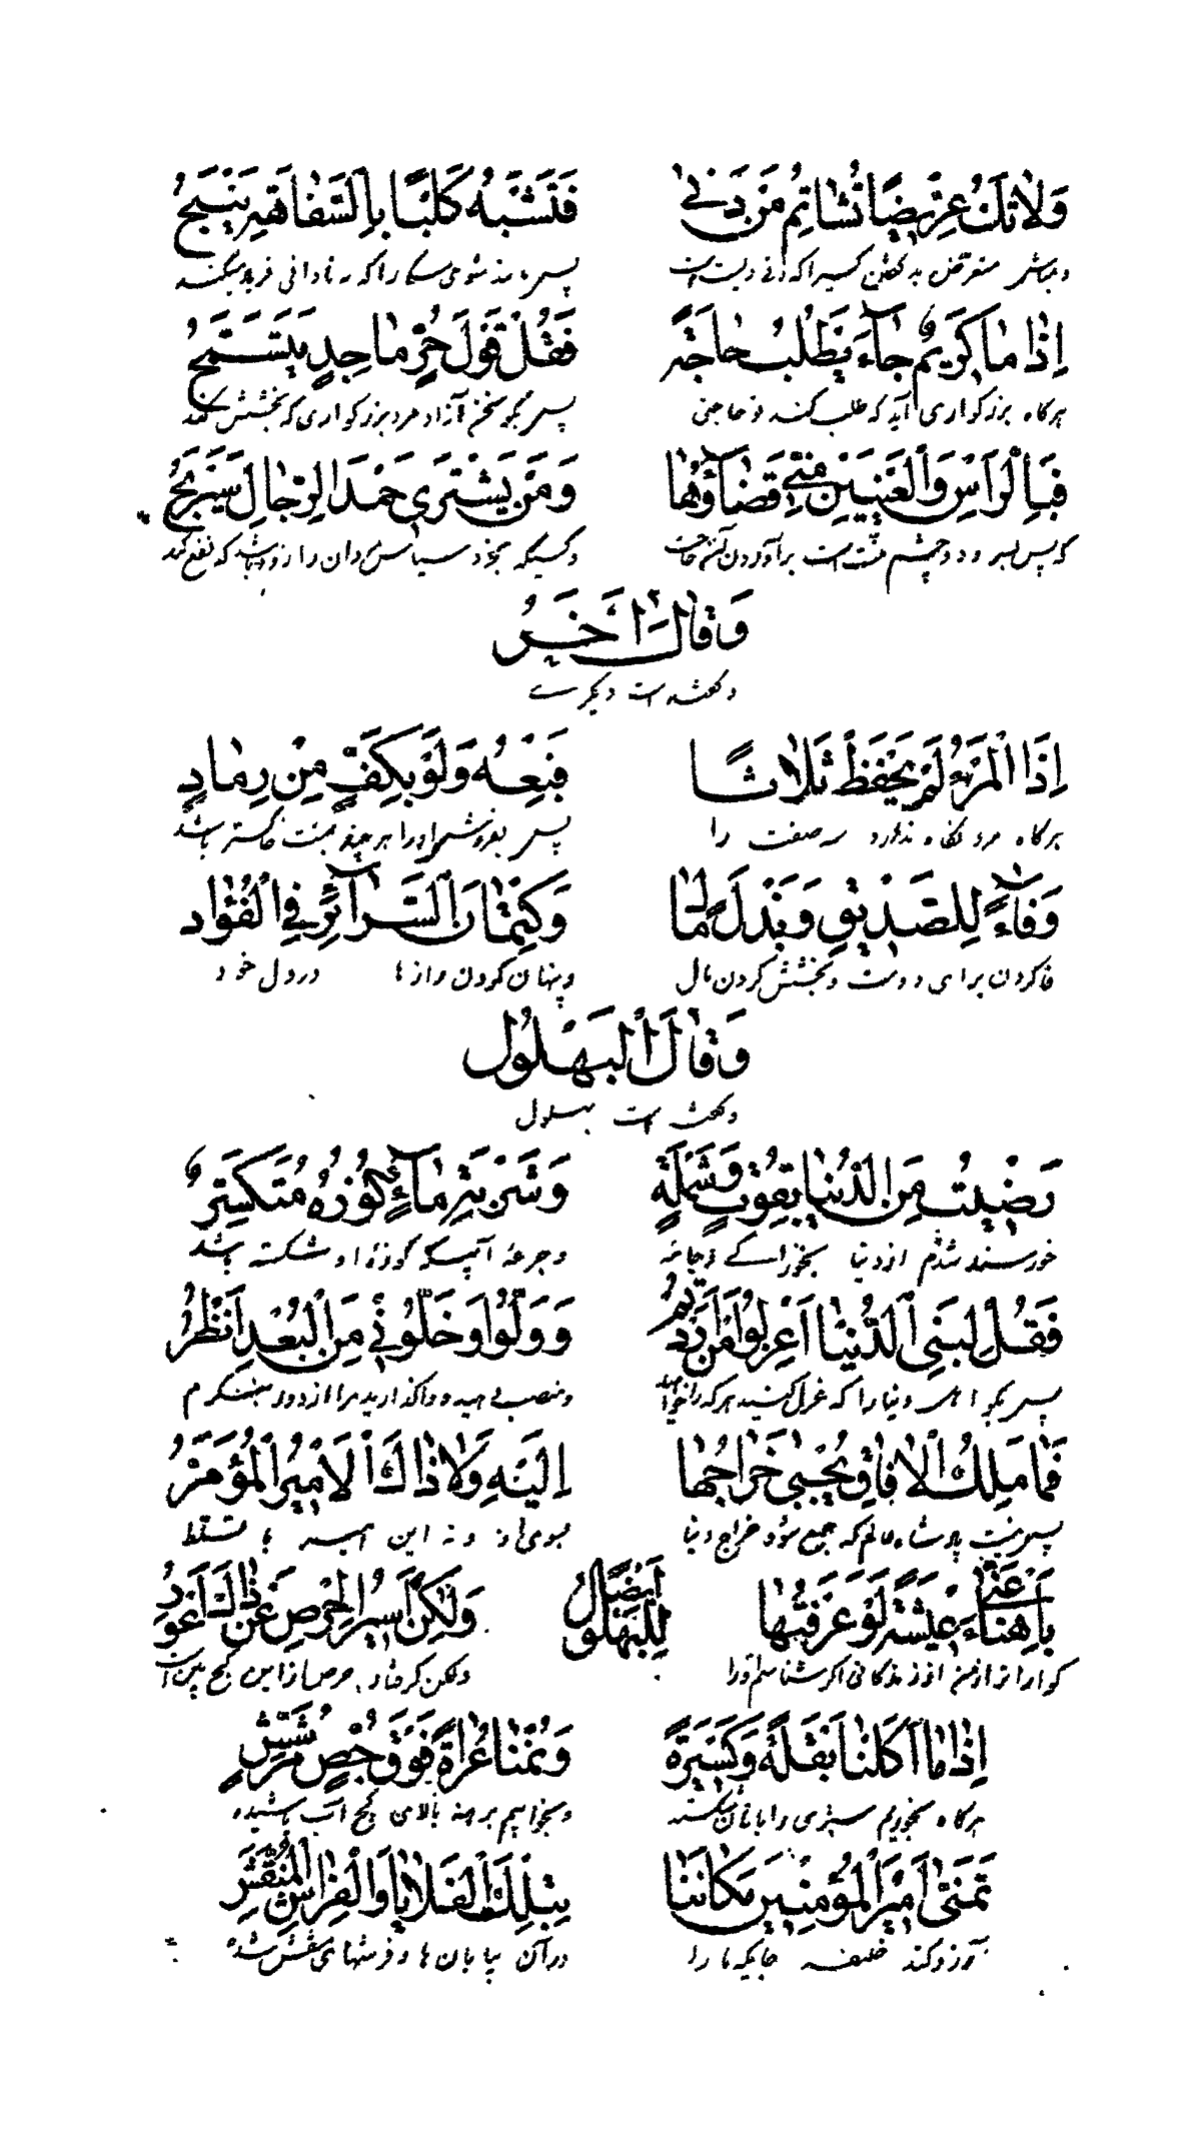 وَلَاتَكُ عِرِّيضًا تُشَاتِمُ مَنْ دَنِیٰ فَتَشَبَّهُ كَلْبًا بِالسَّفَاهَةِ يَنْبَحُ
و مباش متعرض بد گفتن کسیرا که دنی و پست است پس مانند شوی سگی را که بنادانی فریاد میکند
اِذٰا مٰا كَرِيمٌ جٰآءَ يَطْلُبُ حٰاجَةً فَقُلْ قَوْلَ حُرٍّ مٰاجِدٍ يَتَسَمَّحُ
هرگاه بزرگواری آید که طلب کند از حاجتی پس بگو سخن آزاد مرد بزرگواری که بخشش کند
فَبِالرَّأْسِ وَالْعَيْنَيْنِ مِنّي قَضٰآؤُهٰا وَمَنْ يَشْتَرِي حَمْدَ الرِّجٰالِ سَيَرْبَحُ
که پس بسر و دو چشم منست برآوردن آن حاجت و کسیکه بخرد سپاس مردان را زود باشد که نفع کند
وَقٰالَ اٰخَرُ
و گفته است دیگری
اِذَا الْمَرْءُ لَمْ يَحْفَظْ ثَلٰاثًا فَبِعْهُ وَلَوْ بِكَفٍّ مِنْ رِمٰادٍ
هرگاه مرد نگاه ندارد سه صفت را پس بفروش او را هر چند بمشت خاکستر باشد
وَفٰآءً لِلصَّدِيقِ وَبَذْلَ مٰالٍ وَكِتْمٰانَ السَّرٰآئِرِ فِي الْفُؤٰادِ
وفا کردن برای دوست و بخشش کردن مال و پنهان کردن رازها در دل خود
وَقٰالَ الْبَهْلُول
و گفته است بهلول
رَضِيتُ مِنَ الدُّنْيٰا بِقُوتٍ وَشَمْلَةٍ وَشَرْبَةِ مٰآءٍ كُوزُهُ مُتَكَسِّرٌ
خورسند شدم از دنیا بخوراکی و جامه و جرعهٔ آبیکه کوزهٔ او شکسته باشد
فَقُلْ لِبَنِي الدُّنْيٰا اعْزِلُوا مَنْ اَرَدْتُمُ وَوَلُّوا وَخَلُّونِي مِنَ الْبُعْدِ اَنْظُرُ
پس بگو اهل دنیا را که عزل کنید هرکه را خواهید و نصب نمائید و واگذارید مرا از دور بنگرم
فَمٰا مَلِكُ الْاٰفٰاقِ يُجْبىٰ خَرٰاجُهٰا اِلَيْهِ وَلَا ذٰاكَ الْاَمِيرُ الْمُؤَمَّرُ
پس نیست پادشاه عالم که جمع شود خراج دنیا بسوی او و نه این امیر
بِاَهْنَاءَ عَنّي عِيشَةً لَوْ عَرَفْتُهٰا اَيْضًا لِلْبَهْلُولِ وَلٰكِنْ اَسِيرُ الْحِرْصِ عَنْ ذٰلِكَ اَعْوَرُ
گواراتر از من از زندگانی اگر شناسم او را ولکن گرفتار حرص از این کج بین است
اِذٰا مٰا اَكَلْنٰا بَقْلَةً وَكُسَيْرَةً وَنُمْنٰا عُرٰاةً فَوْقَ جُصٍّ مُرَشَّشٍ
هرگاه بخوریم سبزی را با نان شکسته و بخوابیم برهنه بالای گچ آب پاشیده
تَمَنّىٰ اَمِيرُ الْمُؤْمِنِينَ مَكٰانَنٰا بِتِلْكَ الْفَلٰايٰا وَالْفِرٰاشِ الْمُنَقَّشِ
آرزو کند خلیفه جایگه ما را در آن بیابان ها و فرشهای منقش شده